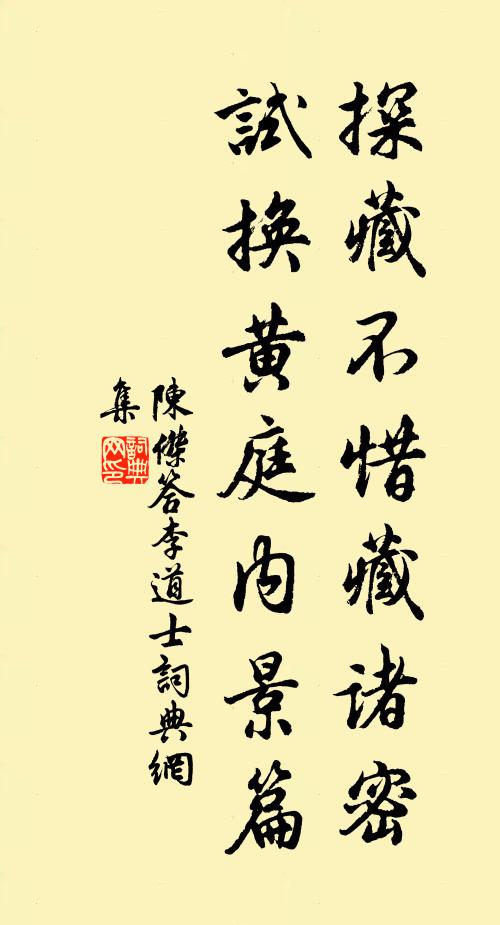 探藏不惜藏諸密
試換黃庭內景篇
陳傑答李道士詞典網
集
詞典
网印